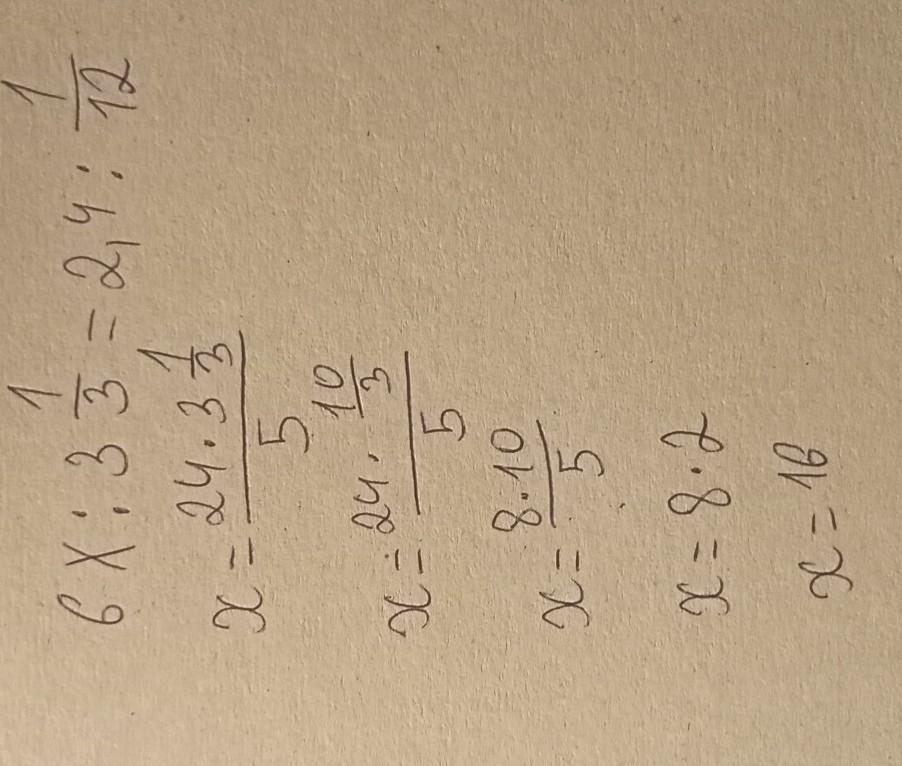 6x : 3 1/3 = 2,4 : 1/12
x = (24 · 3 1/3)/5
x = (24 · 10/3)/5
x = (8 · 10)/5
x = 8 · 2
x = 16